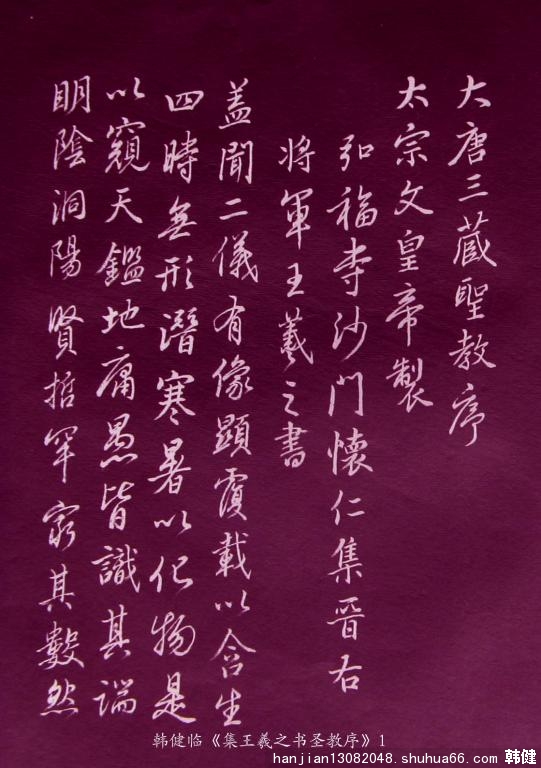 大唐三藏聖教序
太宗文皇帝製
弘福寺沙門懷仁集晉右
将軍王羲之書
盖聞二儀有像顯覆載以含生
四時無形潛寒暑以化物是
以窺天鑑地庸愚皆識其端
明陰洞陽賢哲罕窮其數然
韩健临《集王羲之书圣教序》1
hanjian13082048.shuhua66.com 韩健